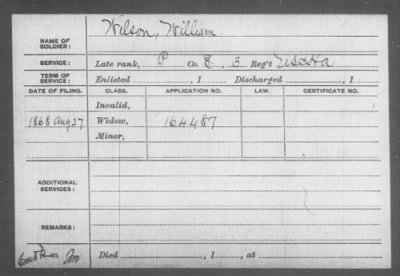 NAME OF SOLDIER: Wilson, William
SERVICE: Late rank, P Co. E, 3 Reg't USCHA
TERM OF SERVICE: Enlisted , 1 Discharged , 1
DATE OF FILING. CLASS. APPLICATION NO. LAW. CERTIFICATE NO.
Invalid,
1868 Aug 27 Widow, 164487
Minor,
ADDITIONAL SERVICES:
REMARKS:
Died , 1 , at